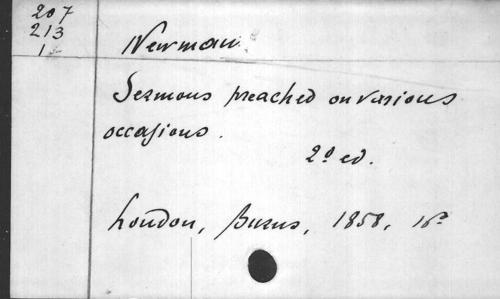 207
213
1
Newman
Sermons preached on various
occasions.
2º ed.
London, Burns, 1858, 16º